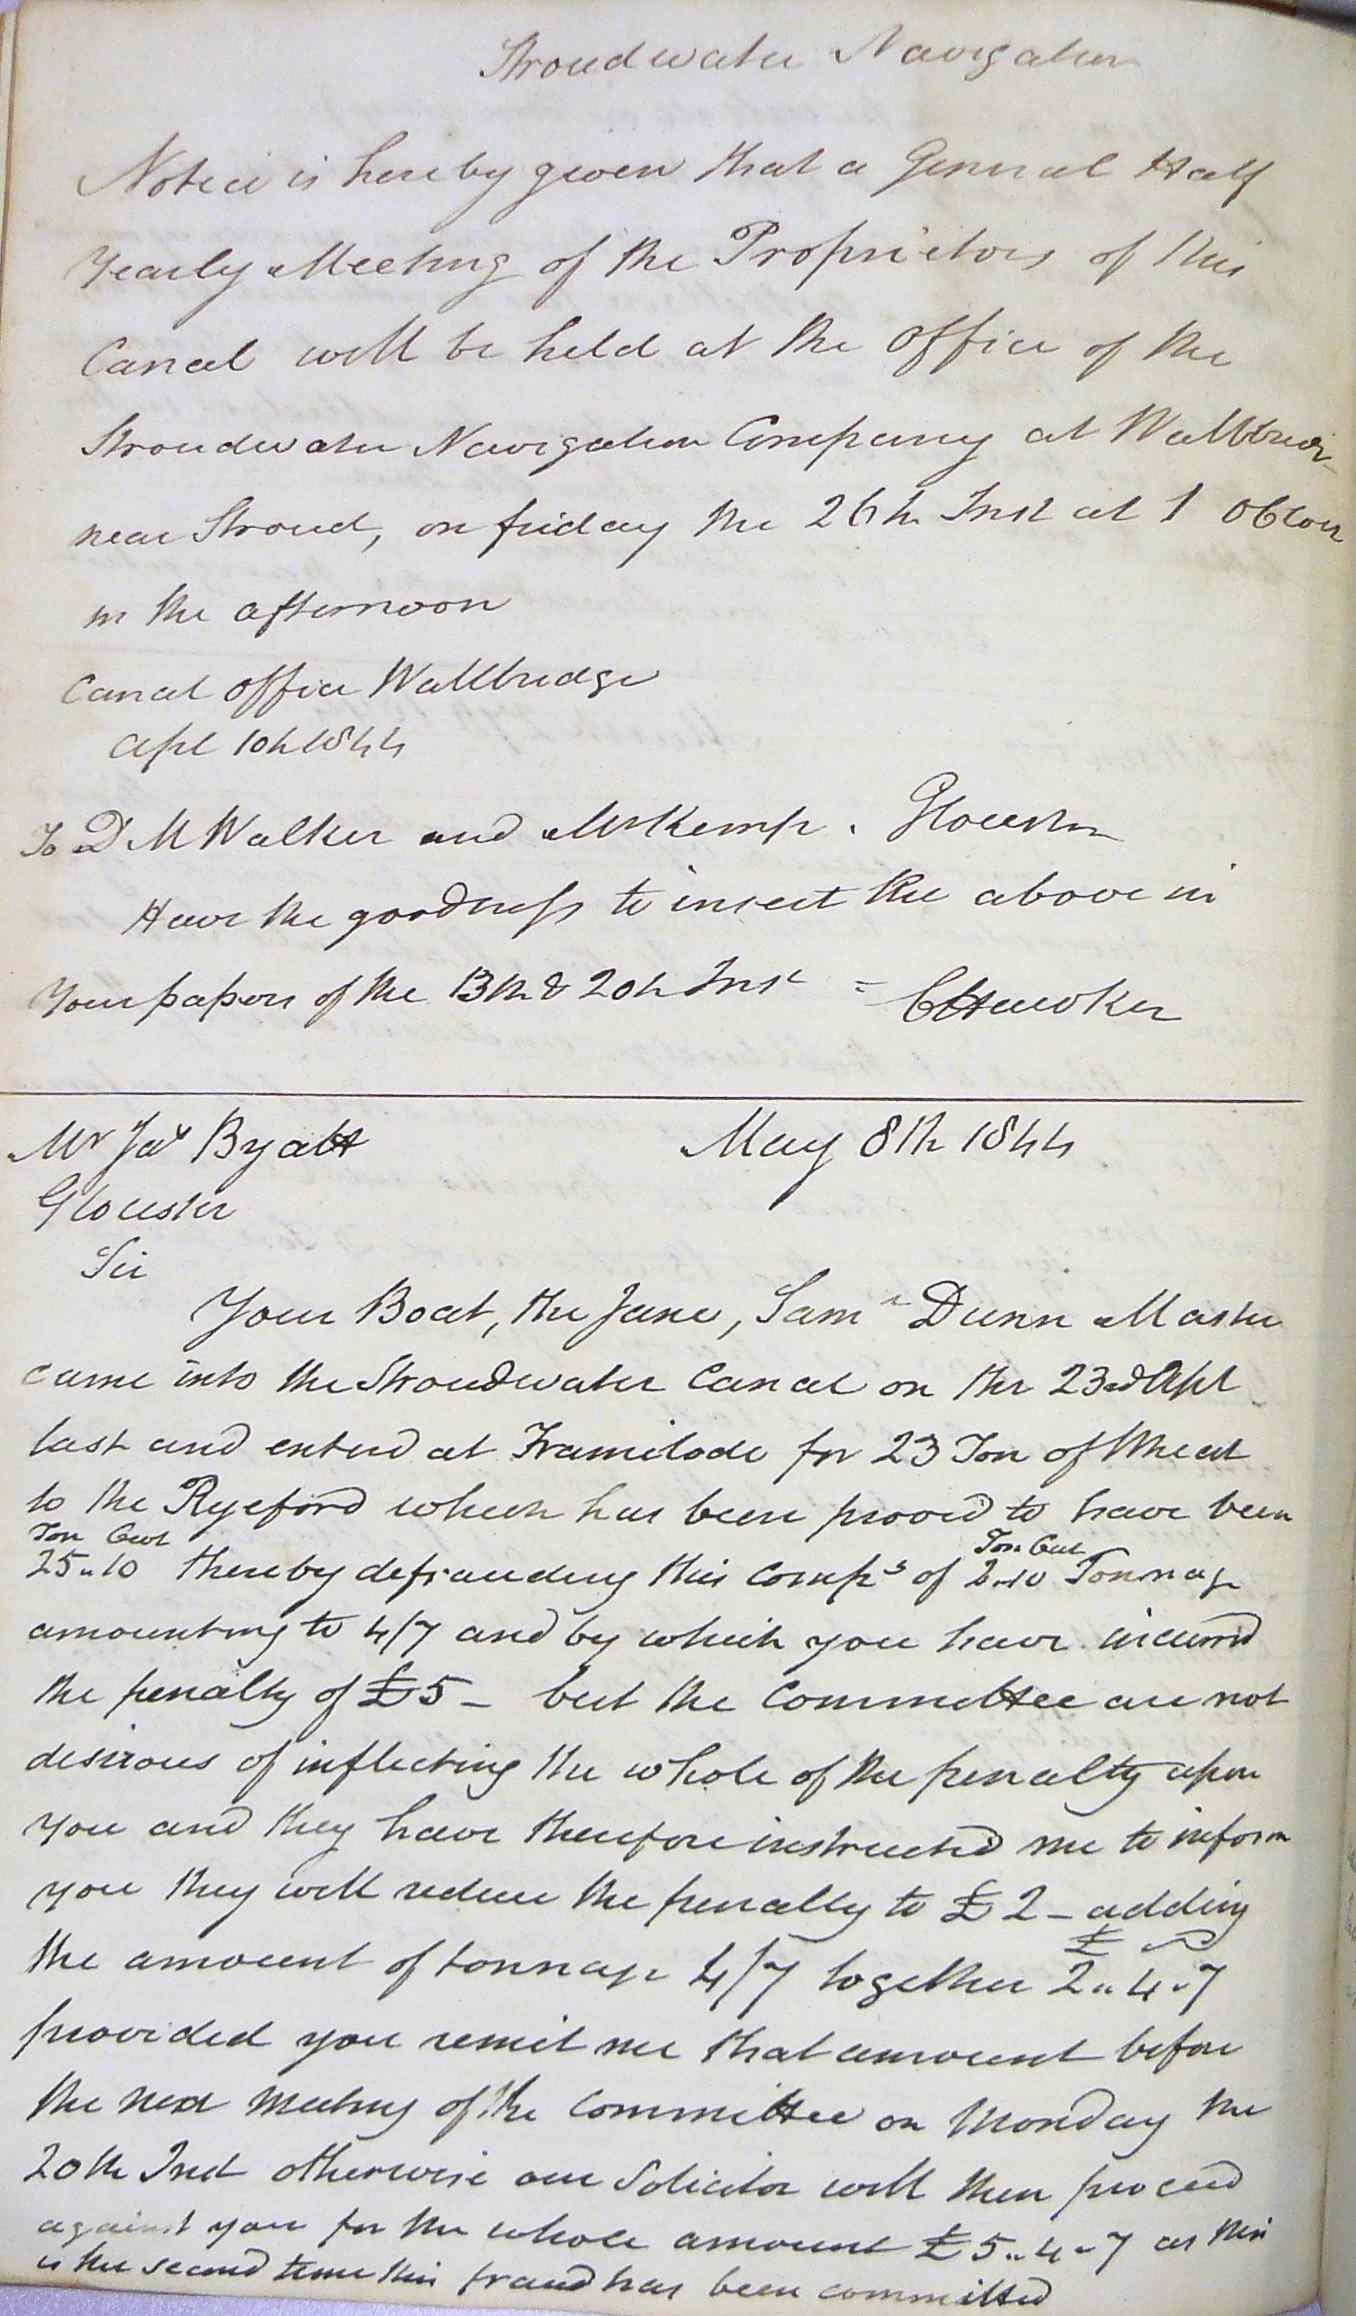 Stroudwater Navigation
Notice is hereby given that a General Half
Yearly Meeting of the Proprietors of this
Canal will be held at the Office of the
Stroudwater Navigation Company at Wallbridge
near Stroud, on friday the 26th Inst at 1 OClock
in the afternoon
Canal Office Wallbridge
Apl 10h 1844
To D M Walker and Mr Kemp. Gloucester
Have the goodness to insert the above in
Your papers of the 13th & 20h Inst = CHawker
Mr Jas Byatt May 8th 1844
Gloucester
Sir
Your Boat, the Jane, Saml Dunn Master
came into the Stroudwater Canal on the 23rd Apl
last and enterd at Framilode for 23 Ton of Wheat
to the Ryeford which has been proved to have been
Ton Cwt Ton Cwt
25..10 thereby defrauding this Compy of 2..10 Tonnage
amounting to 4/7 and by which you have incurred
the penalty of £5 - but the Committee are not
desirous of inflicting the whole of the penalty upon
you and they have therefore instructed me to inform
you they will reduce the penalty to £2 - adding
£
the amount of tonnage 4/7 together 2..4..7
provided you remit me that amount before
the next meeting of the Committee on Monday the
20th Inst otherwise our Solicitor will then proceed
against you for the whole amount £5..4..7 as this
is the second time this fraud has been committed